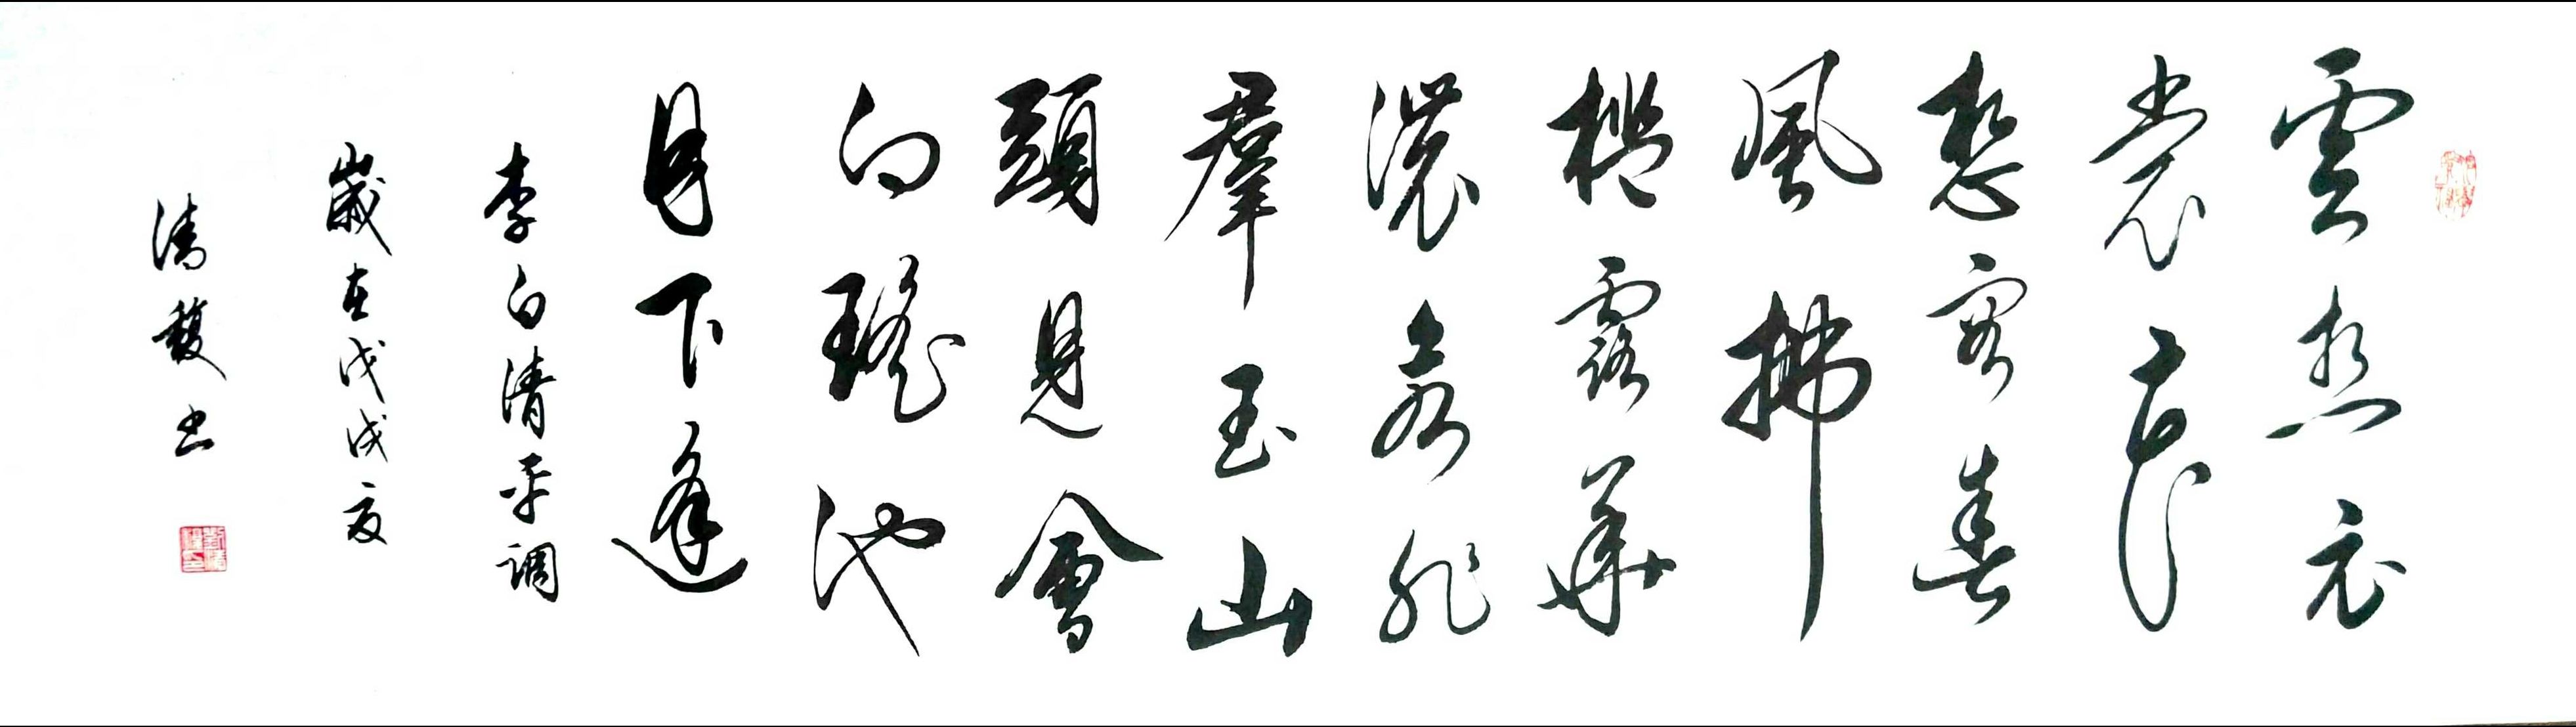 雲想衣
裳花
想容春
風拂
檻露華
濃若非
羣玉山
頭見會
向瑤池
月下逢
李白清平调
歲在戊戌夏
清馥书